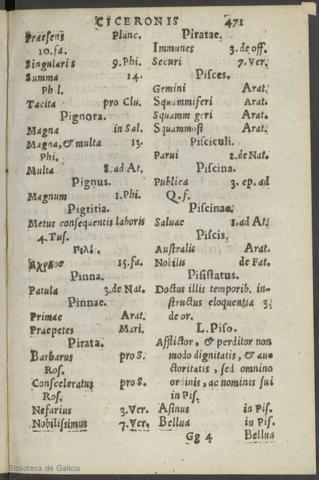 CICERONIS 471
Præsens Planc.
10. fa.
Singularis 9. Phi.
Summa 14.
Phil.
Tacita pro Clu.
Pignora.
Magna in Sal.
Magna, & multa 13.
Phi.
Multa 8. ad At.
Pignus.
Magnum 1. Phi.
Pigritia.
Metus consequentis laboris
4. Tus.
15. fa.
Pinna.
Patula 3. de Nat.
Pinnae.
Primae Arat.
Præpetes Mari.
Pirata.
Barbarus pro S.
Ros.
Consceleratus pro S.
Ros.
Nefarius 3. Ver.
Nobilissimus 7. Ver.
Piratae.
Immunes 3. de off.
Securi 7. Ver.
Pisces.
Gemini Arat.
Squammiferi Arat.
Squammigeri Arat.
Squammosi Arat.
Pisciculi.
Parui 2. de Nat.
Piscina.
Publica 3. ep. ad
Q. f.
Piscinae.
Saluae 1. ad At.
Piscis.
Australis Arat.
Nobilis de Fat.
Pisistatus.
Doctus illis temporib. in-
structus eloquentia 3.
de or.
L. Piso.
Afflictor, & perditor non
modo dignitatis, & au-
ctoritatis, sed omnino
ordinis, ac nominis sui
in Pis.
Asinus in Pis.
Bellua in Pis.
Gg 4 Bellua
Biblioteca de Galicia